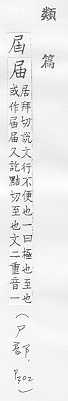 類篇
屆届
居拜切說文行不便也一曰極也至也
或作届届又訖黠切至也文二重音一
(尸部, P302)